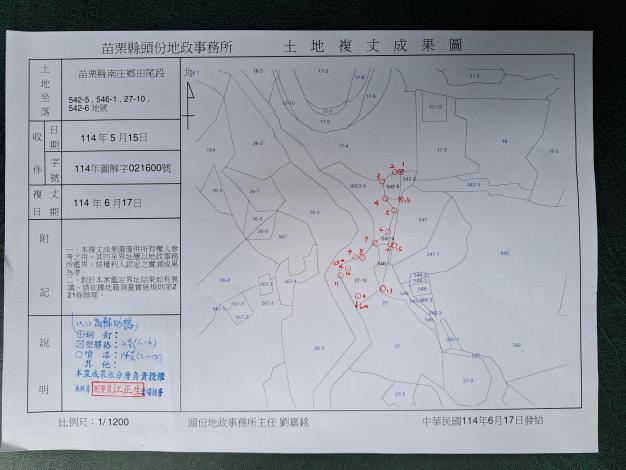 苗栗縣頭份地政事務所 土地複丈成果圖
土地坐落
苗栗縣南庄鄉田尾段
542-5 , 546-1 , 27-10 ,
542-6 地號
收件
日期
114年5月15日
字號
114年圖解字021600號
複丈日期
114年6月17日
附記
一、本複丈成果圖僅供所有權人參
考之用，其四至界址應以地政事務
所鑑界、經權利人認定之實測成果
為準。
二、對於本案鑑定界址結果如有異
議，請依據地籍測量實施規則第2
21條辦理。
說明
銅釘：
塑膠樁：
噴漆：
其他：
本案成果依分層負責授權
測量員江正生
北
18-3
17-3
17-8
17-2
17-10
17-7
17-9
17-5
17-4
17-12
17-2
16
15-5
154
26-3
9003-9
542-5
542-2
542-3
26-5
26-7
547
26-8
26-9
567
542-6
542
546-1
27-10
26-3
27
548
549
542-9
27-5
1
2
3
4
5
6
7
8
9
11
13
15
比例尺：1/1200
頭份地政事務所主任 劉嘉銘
中華民國114年6月17日發給